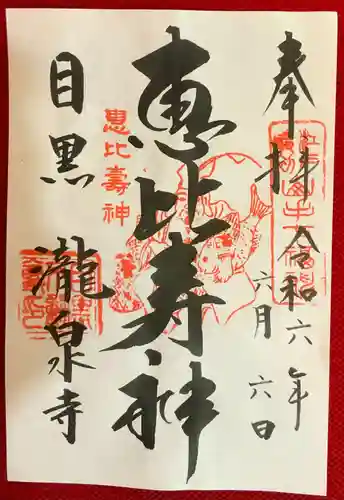 奉拝 令和六年
六月六日
恵比寿神
恵比壽神
目黒 瀧泉寺